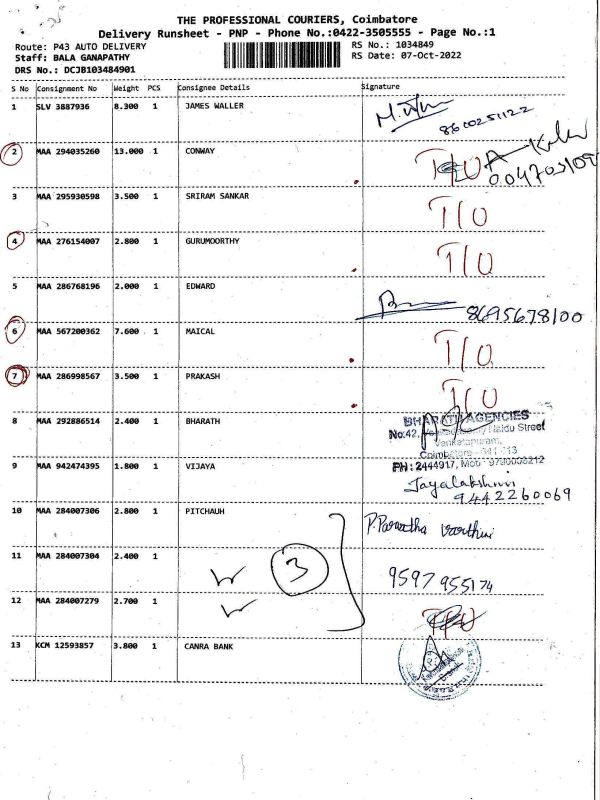 THE PROFESSIONAL COURIERS, Coimbatore
Delivery Runsheet - PNP - Phone No.:0422-3505555 - Page No.:1
Route: P43 AUTO DELIVERY
RS No.: 1034849
Staff: BALA GANAPATHY
RS Date: 07-Oct-2022
DRS No.: DCJB103484901
S No Consignment No Weight PCS Consignee Details Signature
1 SLV 3887936 8.300 1 JAMES WALLER
8600251122
2 MAA 294035260 13.000 1 CONWAY T/O
3 MAA 295930598 3.500 1 SRIRAM SANKAR T/O
4 MAA 276154007 2.800 1 GURUMOORTHY T/O
5 MAA 286768196 2.000 1 EDWARD
8695678100
6 MAA 567200362 7.600 1 MAICAL T/O
7 MAA 286998567 3.500 1 PRAKASH T/O
8 MAA 292886514 2.400 1 BHARATH
BHARATH AGENCIES
No:42, Naidu Street
Venkatapuram,
Coimbatore
PH: 2444917, Mob
9 MAA 942474395 1.800 1 VIJAYA
Jayalakshmi
9442260069
10 MAA 284007306 2.800 1 PITCHAUH
11 MAA 284007304 2.400 1
3
9597955174
12 MAA 284007279 2.700 1
T/O
13 KCM 12593857 3.800 1 CANRA BANK